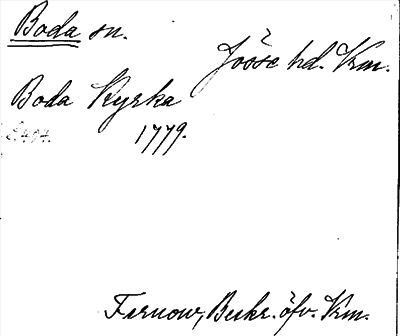 Boda sn.
Jösse hd. Vrm.
Boda Kyrka
1779.
Fernow, Beskr. öfv. Vrm.